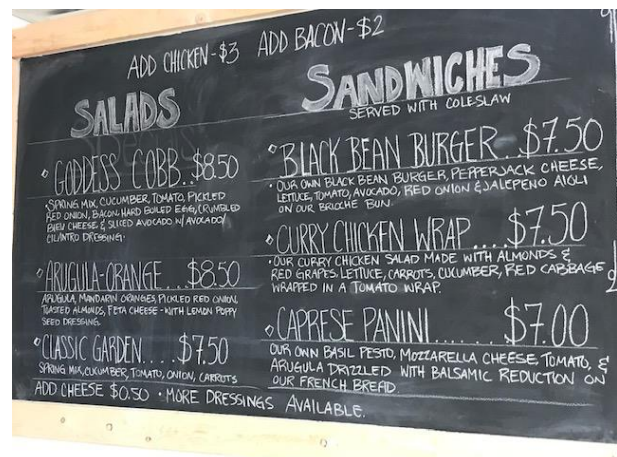 ADD CHICKEN-$3 ADD BACON-$2
SALADS
GODDESS COBB..$8.50
SPRING MIX, CUCUMBER, TOMATO, PICKLED
RED ONION, BACON, HARD BOILED EGG, CRUMBLED
BLEU CHEESE & SLICED AVOCADO W/ AVOCADO/
CILANTRO DRESSING.
ARUGULA-ORANGE...$8.50
ARUGULA, MANDARIN ORANGES, PICKLED RED ONION,
TOASTED ALMONDS, FETA CHEESE - WITH LEMON POPPY
SEED DRESSING.
CLASSIC GARDEN....$7.50
SPRING MIX, CUCUMBER, TOMATO, ONION, CARROTS
ADD CHEESE $0.50 • MORE DRESSINGS AVAILABLE.
SANDWICHES
SERVED WITH COLESLAW
BLACK BEAN BURGER..$7.50
• OUR OWN BLACK BEAN BURGER, PEPPERJACK CHEESE,
LETTUCE, TOMATO, AVOCADO, RED ONION & JALEPENO AIOLI
ON OUR BRIOCHE BUN.
CURRY CHICKEN WRAP....$7.50
• OUR CURRY CHICKEN SALAD MADE WITH ALMONDS &
RED GRAPES, LETTUCE, CARROTS, CUCUMBER, RED CABBAGE
WRAPPED IN A TOMATO WRAP.
CAPRESE PANINI......$7.00
OUR OWN BASIL PESTO, MOZZARELLA CHEESE, TOMATO, &
ARUGULA DRIZZLED WITH BALSAMIC REDUCTION ON
OUR FRENCH BREAD.